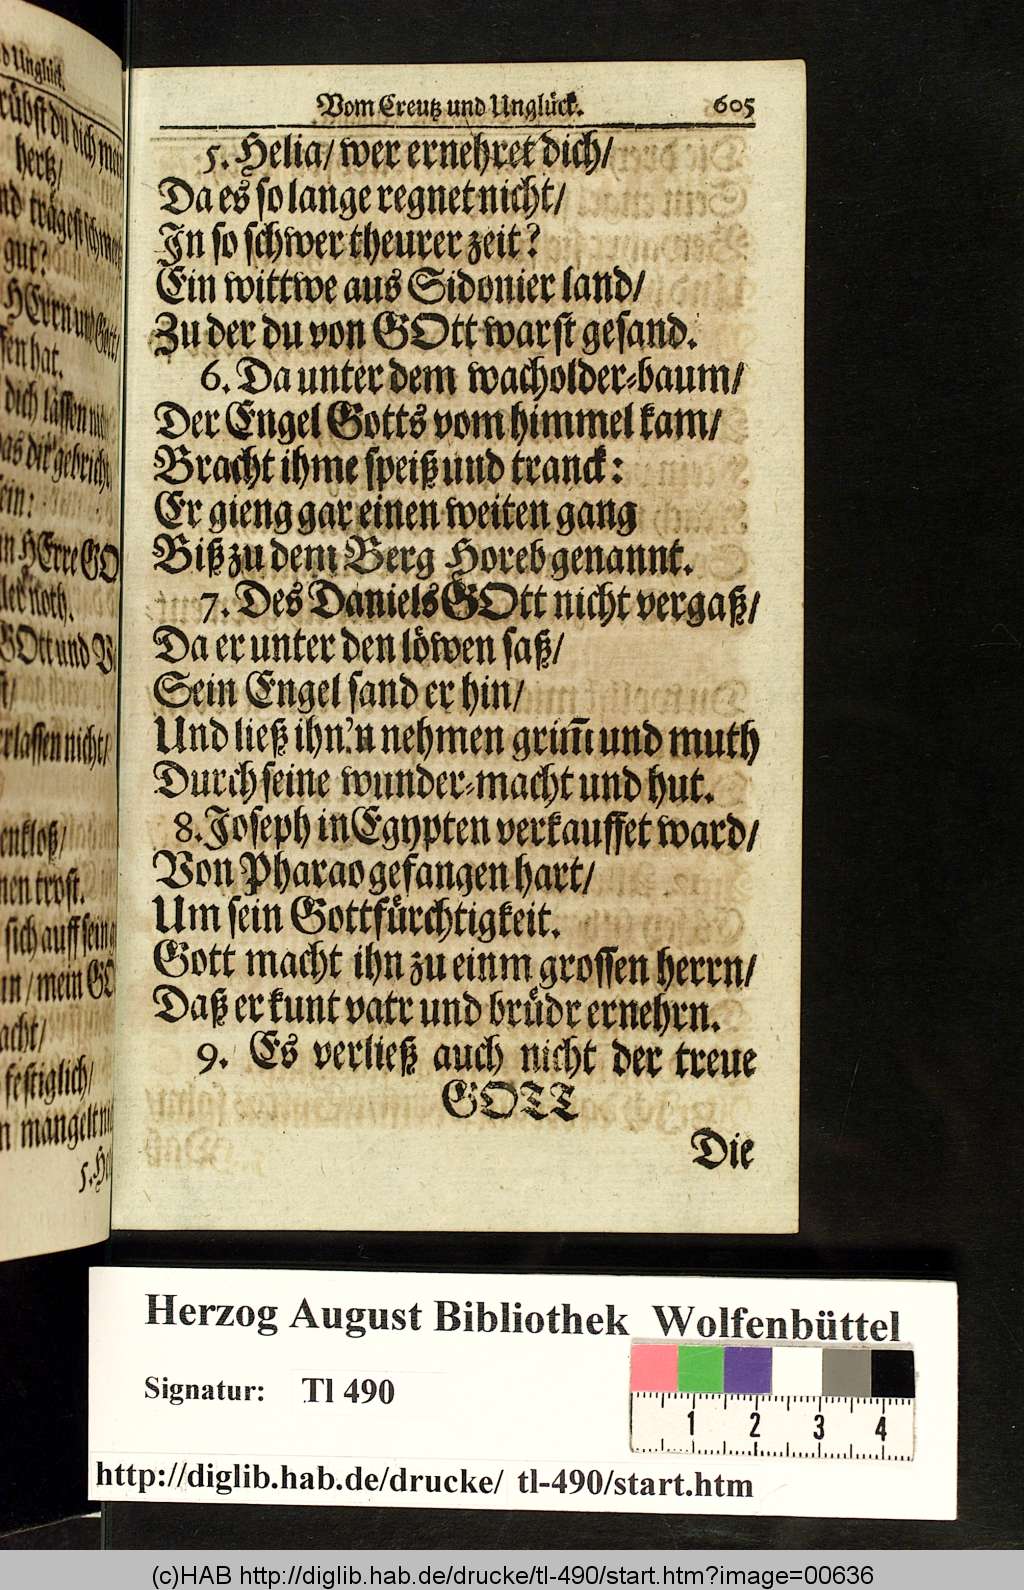 Vom Creutz und Unglück. 605
5. Helia/ wer ernehret dich/
Da es so lange regnet nicht/
In so schwer theurer zeit?
Ein wittwe aus Sidonier land/
Zu der du von GOtt warst gesand.
6. Da unter dem wacholder-baum/
Der Engel Gotts vom himmel kam/
Bracht ihme speiß und tranck:
Er gieng gar einen weiten gang
Biß zu dem Berg Horeb genannt.
7. Des Daniels GOtt nicht vergaß/
Da er unter den löwen saß/
Sein Engel sand er hin/
Und ließ ihn'n nehmen grim̃ und muth
Durch seine wunder-macht und hut.
8. Joseph in Egypten verkauffet ward/
Von Pharao gefangen hart/
Um sein Gottfürchtigkeit.
Gott macht ihn zu einm grossen herrn/
Daß er kunt vatr und brüdr ernehrn.
9. Es verließ auch nicht der treue
GOTT
Die
Herzog August Bibliothek Wolfenbüttel
Signatur: Tl 490
1 2 3 4
http://diglib.hab.de/drucke/ tl-490/start.htm
(c)HAB http://diglib.hab.de/drucke/tl-490/start.htm?image=00636